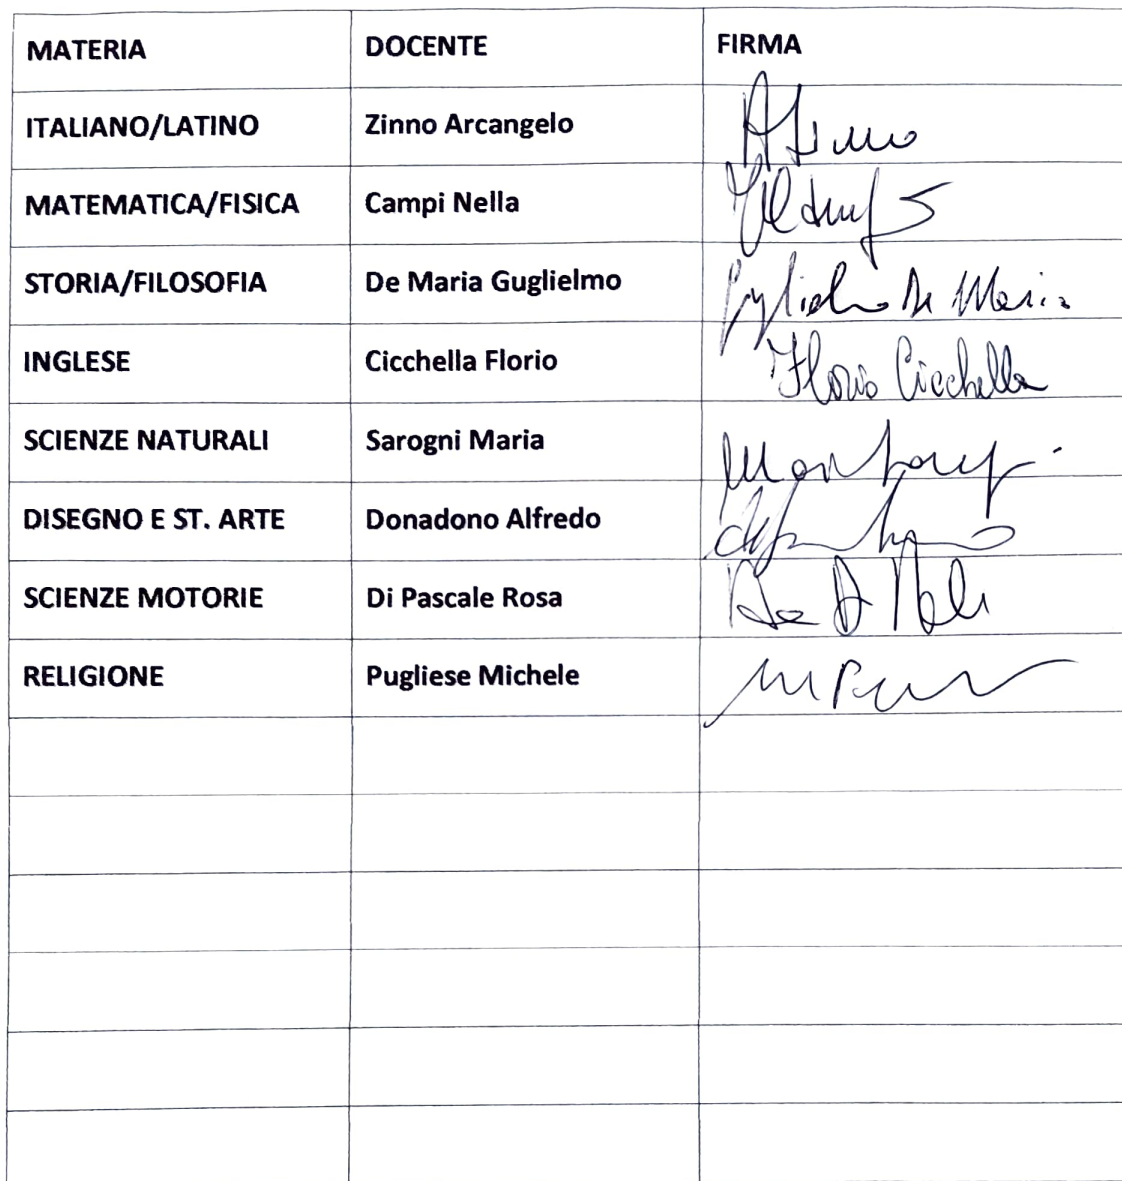 MATERIA DOCENTE FIRMA
ITALIANO/LATINO Zinno Arcangelo
MATEMATICA/FISICA Campi Nella
STORIA/FILOSOFIA De Maria Guglielmo Guglielmo De Maria
INGLESE Cicchella Florio Florio Cicchella
SCIENZE NATURALI Sarogni Maria
DISEGNO E ST. ARTE Donadono Alfredo
SCIENZE MOTORIE Di Pascale Rosa
RELIGIONE Pugliese Michele